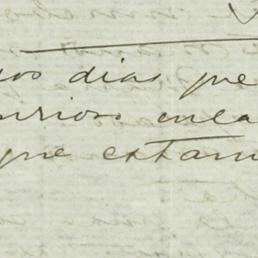 dos dias que
urioso enla
que estam